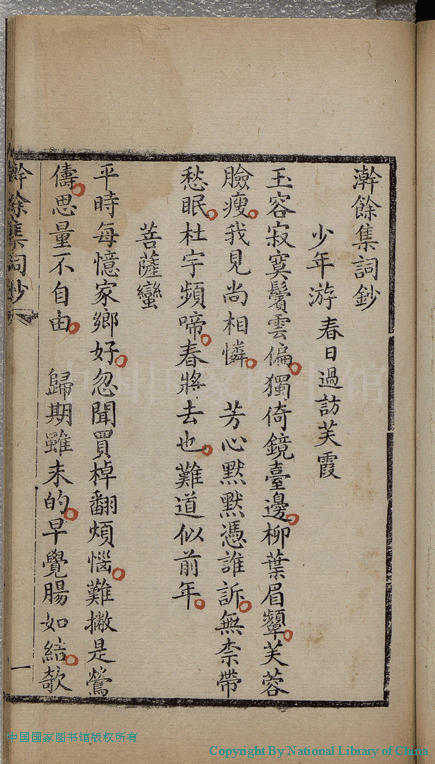 澣餘集詞鈔
少年游 春日過訪芙霞
玉容寂寞鬢雲偏獨倚鏡臺邊柳葉眉顰芙蓉
臉瘦我見尚相憐 芳心默默憑誰訴無柰帶
愁眠杜宇頻啼春將去也難道似前年
菩薩蠻
平時每憶家鄉好忽聞買棹翻煩惱難撇是鶯
儔思量不自由 歸期雖未的早覺腸如結欹
澣餘集詞鈔
一
中国国家图书馆
中国国家图书馆版权所有
Copyright By National Library of China